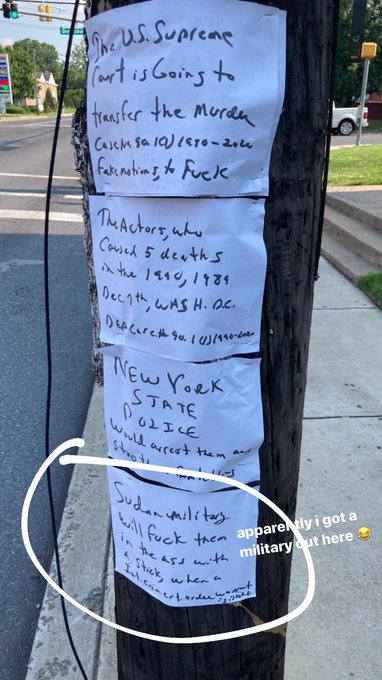 The U.S. Supreme
Court is Going to
transfer the Murder
Case # 90.10)1990-2020
Fake motions, to Fuck
The Actors, who
Caused 5 deaths
in the 1990, 1989
Dec. 7th, WASH. D.C.
NEW YORK
STATE
POLICE
would arrest them and
Sudan military
will fuck them
in the ass with
a stick, when a
order
apparently i got a
military out here 😂